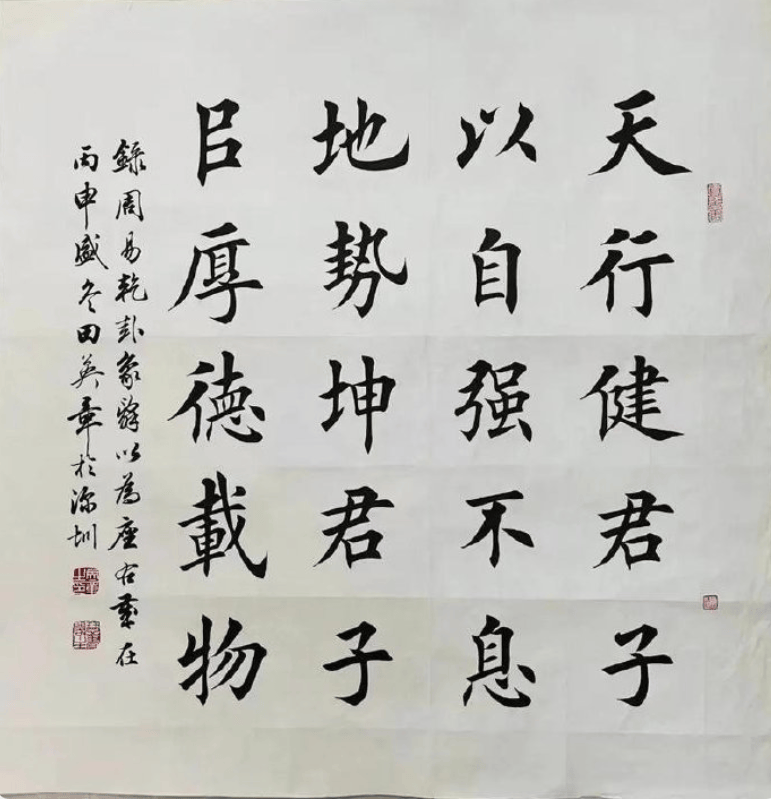 天行健君子
以自强不息
地势坤君子
㠯厚德載物
録周易乾卦象辭以為座右歲在
丙申盛冬田英章於深圳